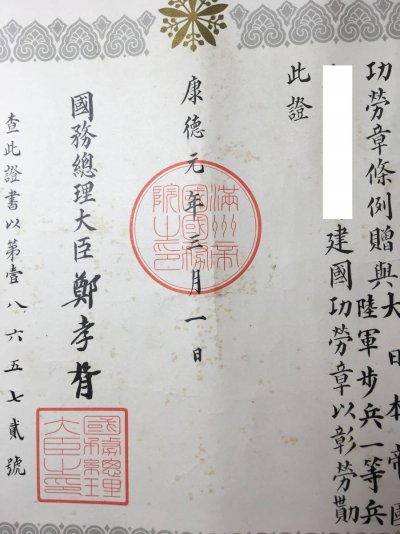 功勞章條例贈與大日本帝國
陸軍步兵一等兵
建國功勞章以彰勞勩
此證
康德元年三月一日
滿州帝
國國務
院之印
國務總理大臣鄭孝胥
國務總理
大臣之印
查此證書以第壹八六五七貳號